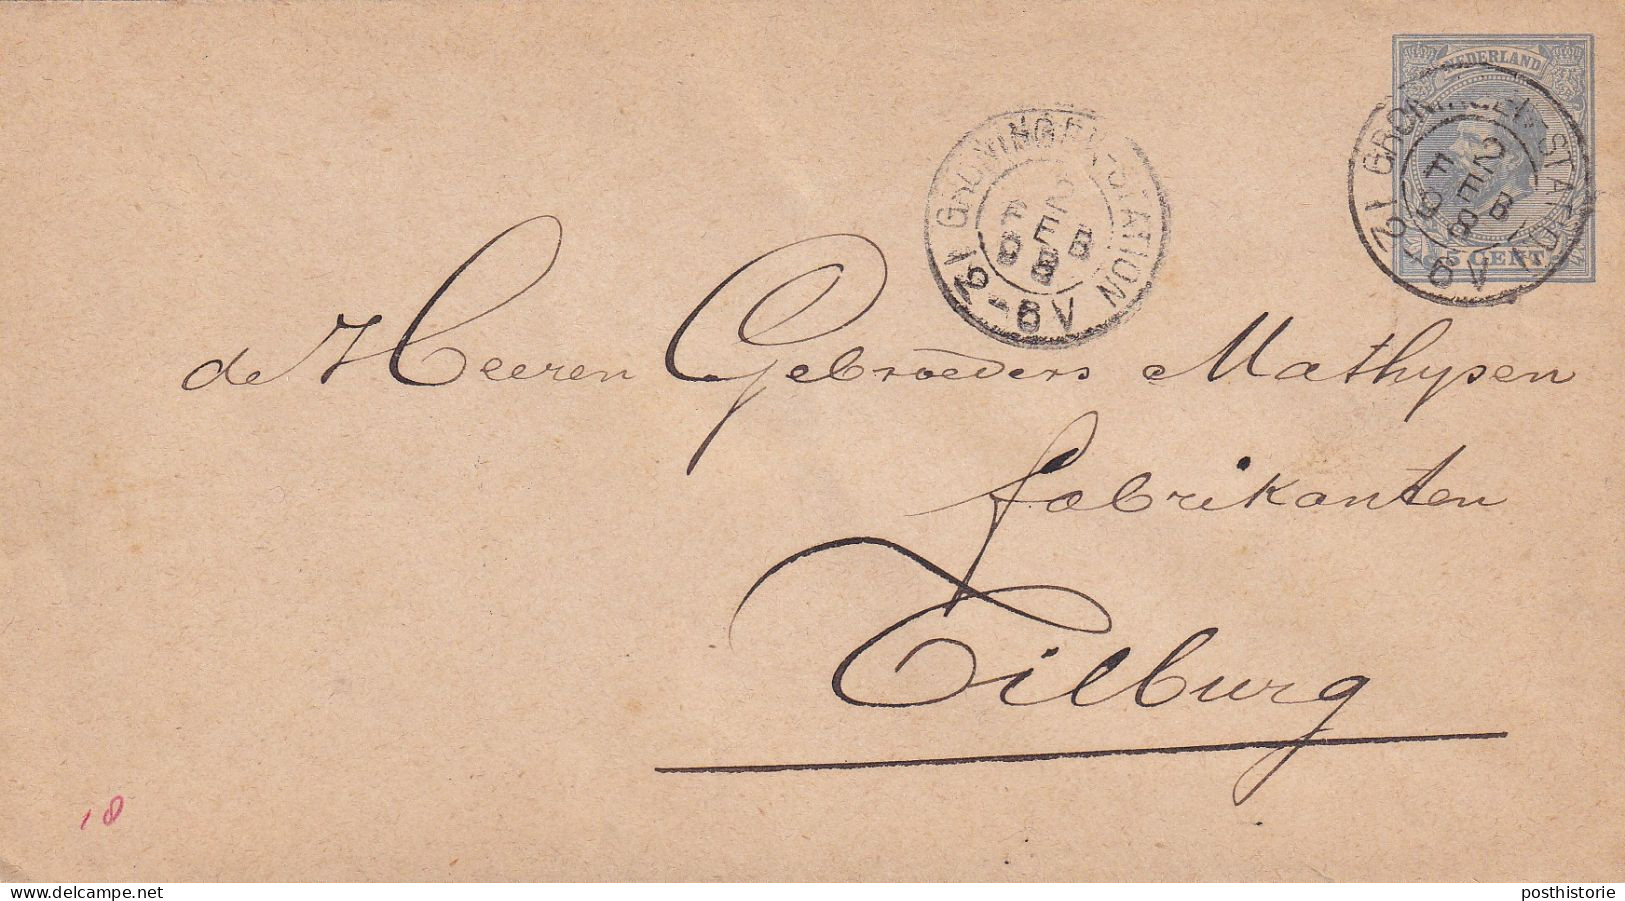 NEDERLAND
5 CENT
GRONINGEN-STATION
2 FEB
12-6V
GRONINGEN-STATION
2 FEB
12-6V
de Heeren Gebroeders Mathysen
fabrikanten
Tilburg
18
www.delcampe.net
posthistorie